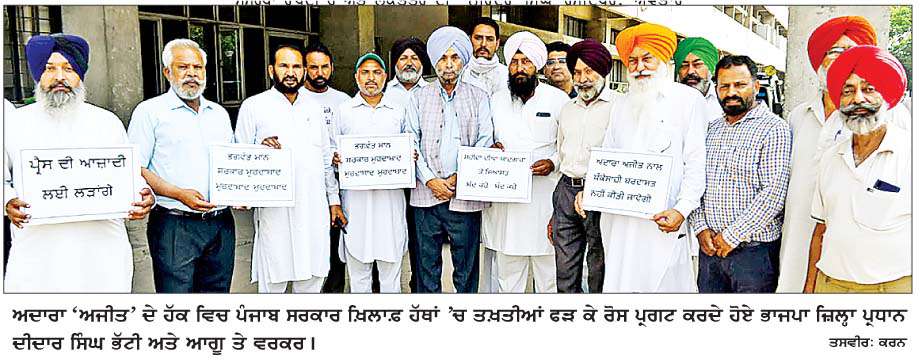 ਪ੍ਰੈਸ ਦੀ ਆਜ਼ਾਦੀ
ਲਈ ਲੜਾਂਗੇ
ਭਗਵੰਤ ਮਾਨ
ਸਰਕਾਰ ਮੁਰਦਾਬਾਦ
ਮੁਰਦਾਬਾਦ ਮੁਰਦਾਬਾਦ
ਭਗਵੰਤ ਮਾਨ
ਸਰਕਾਰ ਮੁਰਦਾਬਾਦ
ਮੁਰਦਾਬਾਦ ਮੁਰਦਾਬਾਦ
ਤੇ ਸਿਆਸਤ
ਬੰਦ ਕਰੋ ਬੰਦ ਕਰੋ
ਅਦਾਰਾ ਅਜੀਤ ਨਾਲ
ਧੱਕੇਸ਼ਾਹੀ ਬਰਦਾਸ਼ਤ
ਨਹੀਂ ਕੀਤੀ ਜਾਵੇਗੀ
ਅਦਾਰਾ ‘ਅਜੀਤ’ ਦੇ ਹੱਕ ਵਿਚ ਪੰਜਾਬ ਸਰਕਾਰ ਖ਼ਿਲਾਫ਼ ਹੱਥਾਂ ’ਚ ਤਖ਼ਤੀਆਂ ਫੜ ਕੇ ਰੋਸ ਪ੍ਰਗਟ ਕਰਦੇ ਹੋਏ ਭਾਜਪਾ ਜ਼ਿਲ੍ਹਾ ਪ੍ਰਧਾਨ
ਦੀਦਾਰ ਸਿੰਘ ਭੱਟੀ ਅਤੇ ਆਗੂ ਤੇ ਵਰਕਰ। ਤਸਵੀਰ: ਕਰਨ